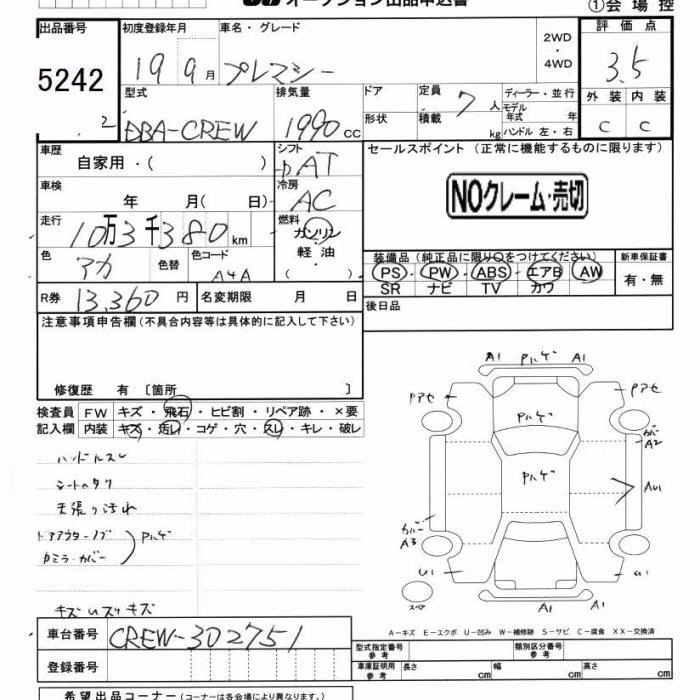 オークション出品申込書
①会場控
出品番号 初度登録年月 車名・グレード 2WD・4WD 評価点
5242 19年9月 プレマシー 3.5
2
型式 排気量 ドア 定員 ディーラー・並行 外装 内装
DBA-CREW 1990cc 7人 モデル年式 年 C C
形状 積載 kg ハンドル 左・右
車歴 自家用・( ) シフト AT セールスポイント (正常に機能するものに限ります)
車検 年 月(日) 冷房 AC
NOクレーム・売切
走行 10万3千380km 燃料 ガソリン 軽油 ( )
色 アカ 色替 色コード A4A
装備品 (純正品に限り○をつけてください) 新車保証書
PS・PW・ABS・エアB・AW 有・無
SR ナビ TV カワ
R券 13,360円 名変期限 月 日 後日品
注意事項申告欄 (不具合内容等は具体的に記入して下さい)
修復歴 有 〔箇所 〕
検査員 FW キズ・飛石・ヒビ割・リペア跡・×要
記入欄 内装 キズ・汚レ・コゲ・穴・スレ・キレ・破レ
ハンドルスレ
シートヘタリ
天張り汚れ
ドアアウターノブ
カミラーカバー
Pハゲ
キズ U スリキズ
A1 Pハゲ A1
Pアセ Pアセ
Pハゲ
カバー A2
Pハゲ
AU1
カバー A3
U1
スペア
A1 A1
A-キズ E-エクボ U-凹み W-補修跡 S-サビ C-腐食 XX-交換済
車台番号 CREW-302751
型式指定番号 参考 類別区分番号 参考
登録番号
車庫証明用 参考 長さ cm 幅 cm 高さ cm
希望出品コーナー (コーナーは各会場により異なります。)